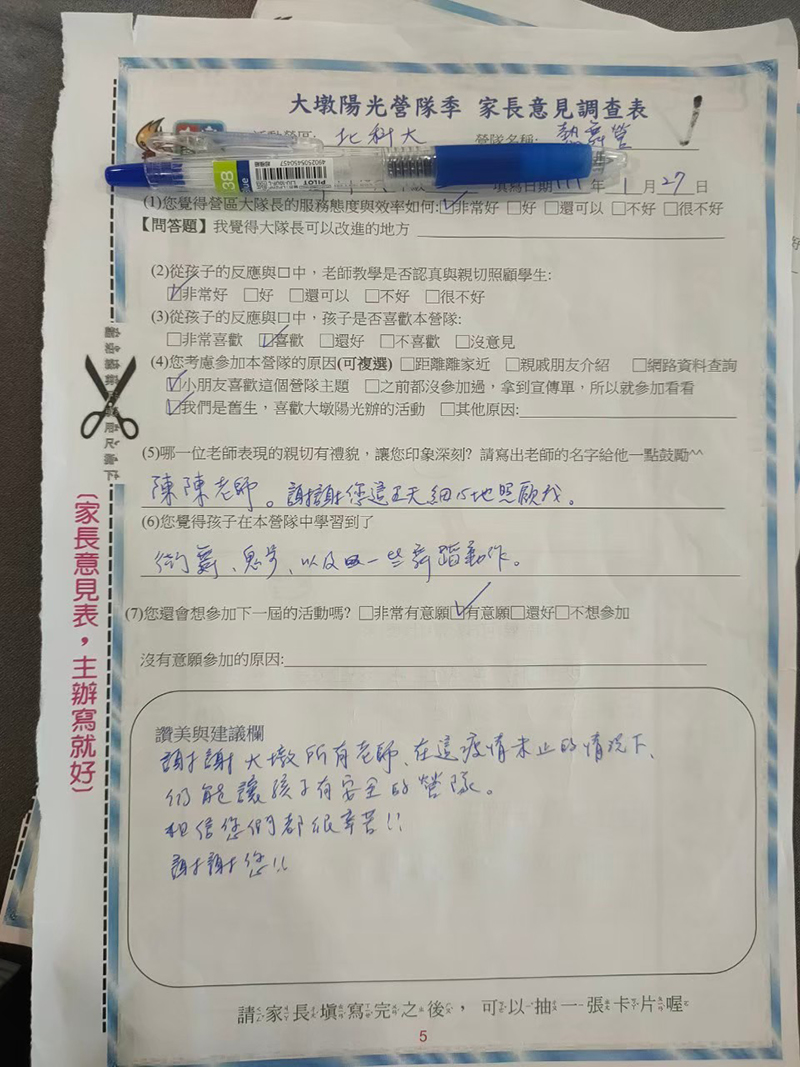 大墩陽光營隊季 家長意見調查表
北科大 營隊名稱: 熱舞營
填寫日期111年1月27日
(1)您覺得營區大隊長的服務態度與效率如何:☑非常好 □好 □還可以 □不好 □很不好
【問答題】我覺得大隊長可以改進的地方
(2)從孩子的反應與口中,老師教學是否認真與親切照顧學生:
☑非常好 □好 □還可以 □不好 □很不好
(3)從孩子的反應與口中,孩子是否喜歡本營隊:
□非常喜歡 ☑喜歡 □還好 □不喜歡 □沒意見
(4)您考慮參加本營隊的原因(可複選) □距離離家近 □親戚朋友介紹 □網路資料查詢
☑小朋友喜歡這個營隊主題 □之前都沒參加過,拿到宣傳單,所以就參加看看
☑我們是舊生,喜歡大墩陽光辦的活動 □其他原因:
(5)哪一位老師表現的親切有禮貌,讓您印象深刻? 請寫出老師的名字給他一點鼓勵^^
陳陳老師。謝謝您這五天細心地照顧我。
(6)您覺得孩子在本營隊中學習到了
街舞、鬼步、以及一些舞蹈動作。
(7)您還會想參加下一屆的活動嗎? □非常有意願☑有意願□還好□不想參加
沒有意願參加的原因:
讚美與建議欄
謝謝大墩所有老師、在這疫情未止的情況下、
仍能讓孩子有安全的營隊。
相信您們都很辛苦!!
謝謝您!!
請家長填寫完之後,可以抽一張卡片喔
5
(家長意見表,主辦寫就好)
PILOT
4902505450457
38